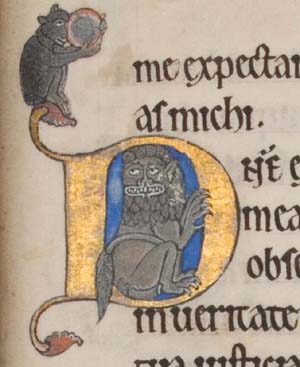 me expectan
as michi.
DN̄E e
mea
obse
in ueritate
tua iusticia